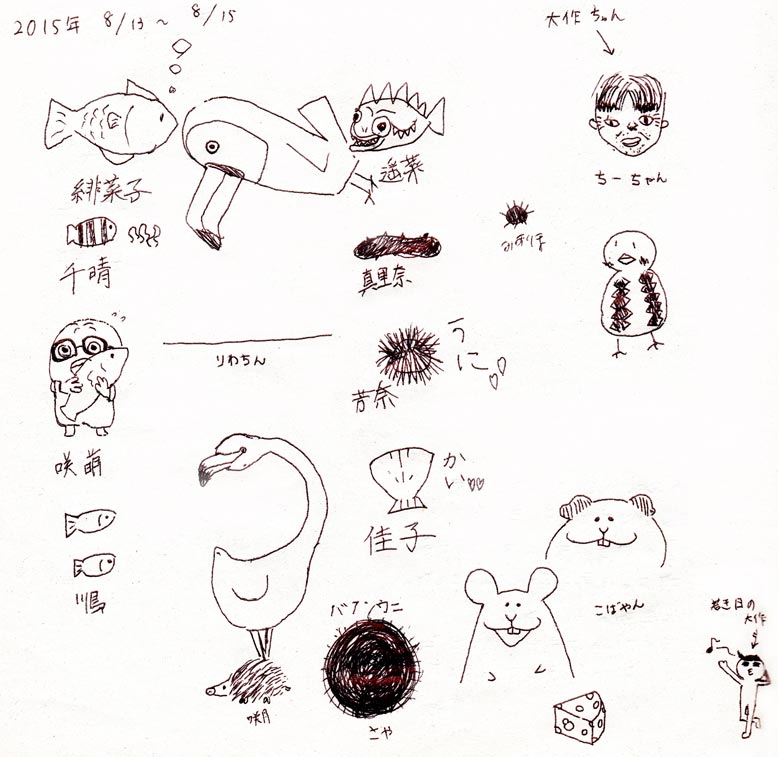 2015年 8/13〜 8/15
大作ちゃん
ちーちゃん
緋菜子
遥菜
千晴
真里奈
りわちん
うに♡♡
杏奈
咲萌
かい♡♡
佳子
バフンウニ
さや
咲月
こばやん
若き日の
大作